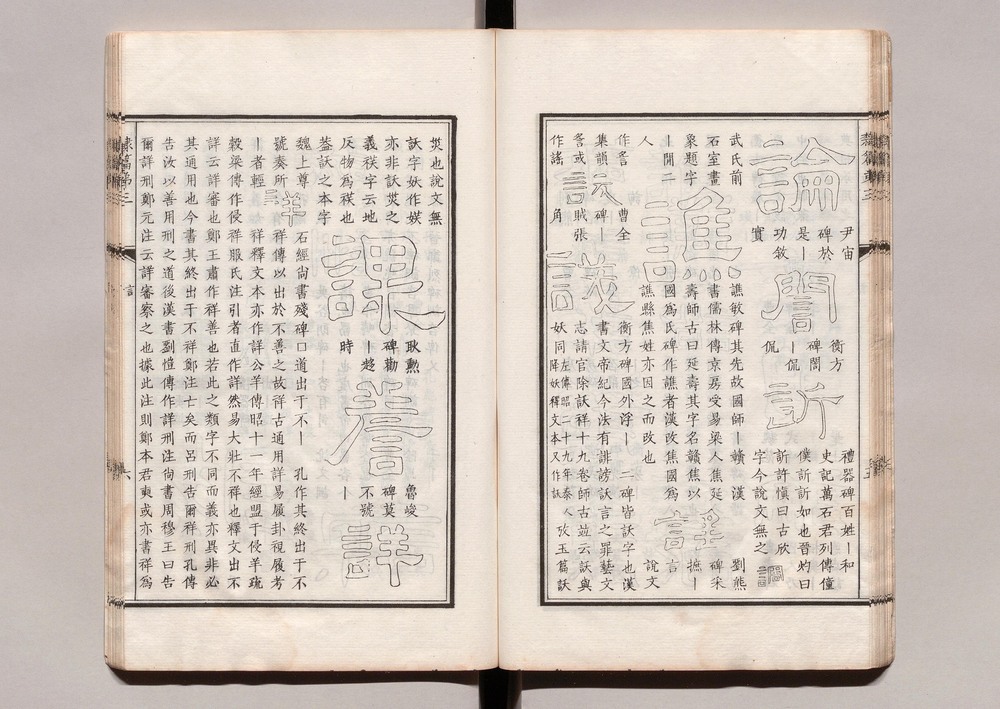 論
尹宙
碑於
是丨
功敘
實
誾
衡方
碑誾
丨侃
侃
訢
禮器碑百姓丨和
史記萬石君列傳僮
僕訢訢如也晉灼曰
訢許慎曰古欣
字今說文無之
調
劉熊
碑采
摭丨
言
說文
武氏前
石室畫
象題字
丨開二
人
譙
譙敏碑其先故國師丨贛
漢書儒林傳京房受易梁人焦延
壽師古曰延壽其字名贛焦以
國為氏碑作譙者漢改焦國為
譙縣焦姓亦因之而改也
作詧
集韻
詧或
作謠
訞
曹全
碑丨
賊張
角
䜁
衡方碑國外浮丨
二碑皆訞字也漢
書文帝紀今法有誹謗訞言之罪藝文
志請官除訞祥十九卷師古並云訞與
妖同
左傳昭二十九年泰人
降妖釋文本又作訞
攷玉篇訞
災也說文無
訞字妖作媄
亦非訞災之
義祅字云地
反物為祅也
蓋訞之本字
課
耿勳
碑勸
丨趨
時
謩
魯峻
碑莫
不號
丨
詳
魏上尊
號奏所
丨者輕
詳
石經尚書殘碑口道出于不丨
孔作其終出于不
祥傳以出於不善之故祥古通用詳易履卦視履考
祥釋文本亦作詳公羊傳昭十一年經盟于侵羊疏
穀梁傳作侵祥服氏注引者直作詳然易大壯不祥也釋文出不
詳云詳審也鄭王肅作祥善也若此之類字不同而義亦異非必
其通用也今書其終出于不祥鄭注亡矣而呂刑告爾祥刑孔傳
告汝以善用刑之道後漢書劉愷傳作詳刑注尚書周穆王曰告
爾詳刑鄭元注云詳審察之也據此注則鄭本君奭或亦書祥為
隸篇第三
言
六